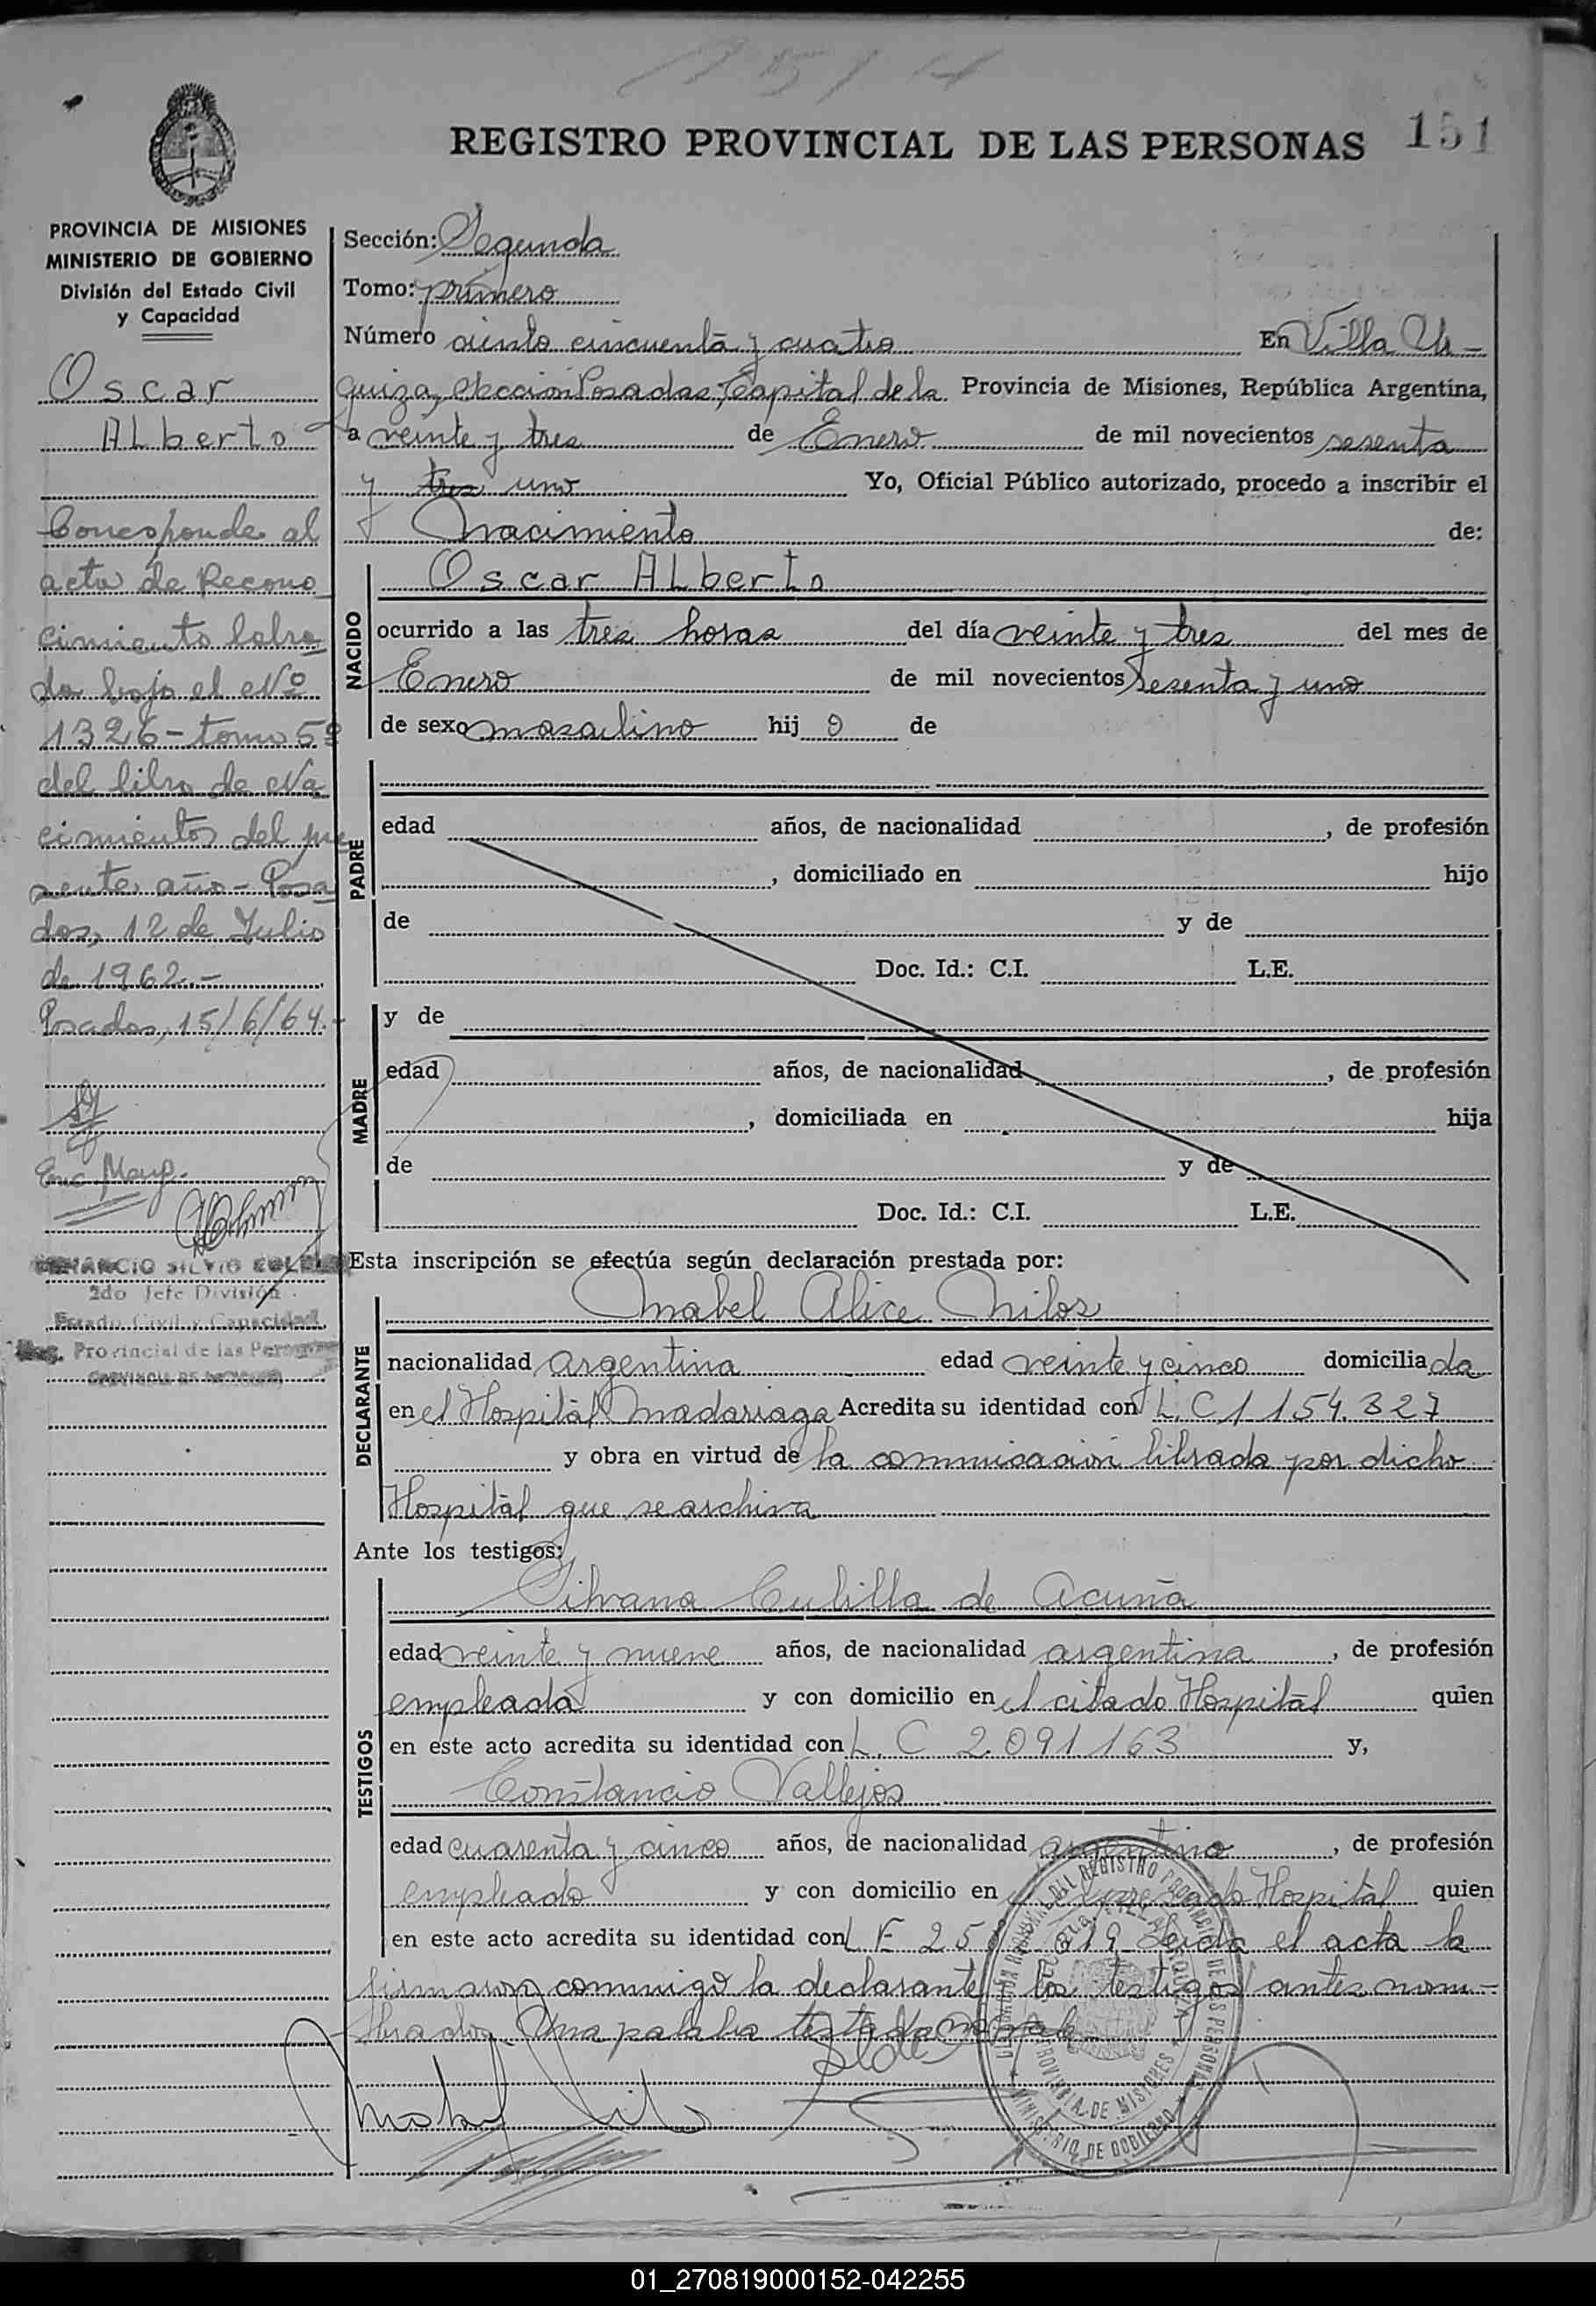 151
REGISTRO PROVINCIAL DE LAS PERSONAS
PROVINCIA DE MISIONES
MINISTERIO DE GOBIERNO
División del Estado Civil
y Capacidad
Oscar
Alberto
Corresponde al
acta de Recono
cimiento labra
da bajo el Nº
1326 - tomo 5º
del libro de Na
cimientos del pre
sente año - Posa
das, 12 de Julio
de 1962.-
Posadas, 15/6/64.-
2do Jefe División
Estado Civil y Capacidad
Reg. Provincial de las Personas
Sección: Segunda
Tomo: primero
Número ciento cincuenta y cuatro En Villa Ur-
quiza, sección Posadas, Capital de la Provincia de Misiones, República Argentina,
a veinte y tres de Enero de mil novecientos sesenta
y tres uno Yo, Oficial Público autorizado, procedo a inscribir el
Nacimiento de:
NACIDO
Oscar Alberto
ocurrido a las tres horas del día veinte y tres del mes de
Enero de mil novecientos sesenta y uno
de sexo masculino hijo de
PADRE
edad años, de nacionalidad , de profesión
, domiciliado en hijo
de y de
Doc. Id.: C.I. L.E.
MADRE
y de
edad años, de nacionalidad , de profesión
, domiciliada en hija
de y de
Doc. Id.: C.I. L.E.
Esta inscripción se efectúa según declaración prestada por:
DECLARANTE
Mabel Alice Milos
nacionalidad argentina edad veinte y cinco domiciliada
en el Hospital Madariaga Acredita su identidad con L. C 1 154.327
y obra en virtud de la comunicación librada por dicho
Hospital que se archiva
Ante los testigos:
TESTIGOS
Silvana Cubilla de Acuña
edad veinte y nueve años, de nacionalidad argentina , de profesión
empleada y con domicilio en el citado Hospital quien
en este acto acredita su identidad con L. C 2.091 163 y,
Constancio Vallejos
edad cuarenta y cinco años, de nacionalidad argentino , de profesión
empleado y con domicilio en Hospital quien
en este acto acredita su identidad con L E 25 019 Leida el acta la
firmaron conmigo la declarante los testigos antes nom-
brados. Una palabra testada no vale
PROVINCIA DE MISIONES
MINISTERIO DE GOBIERNO
01_270819000152-042255